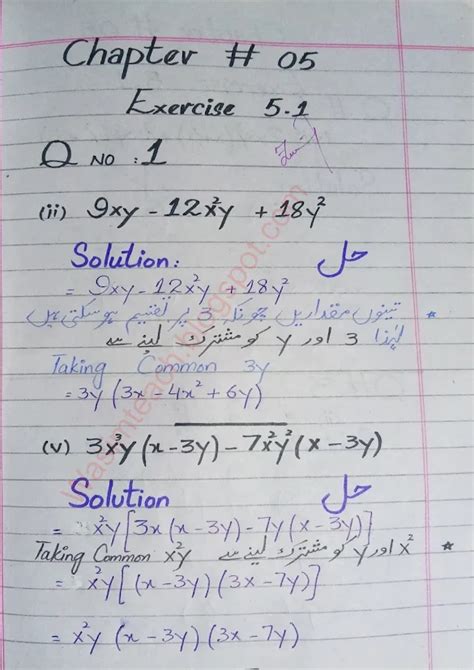 Chapter # 05
Exercise 5.1
Q NO : 1
(ii) 9xy - 12x²y + 18y²
Solution: حل
= 9xy - 12x²y + 18y²
تینوں مقداریں چونکہ 3 پر تقسیم ہو سکتی ہیں *
لہٰذا 3 اور y کو مشترک لینے سے
Taking Common 3y
= 3y (3x - 4x² + 6y)
(v) 3x³y (x - 3y) - 7x²y² (x - 3y)
Solution حل
= x²y [3x (x - 3y) - 7y (x - 3y)]
Taking Common x²y x² اور y کو مشترک لینے سے *
= x²y [(x - 3y) (3x - 7y)]
= x²y (x - 3y) (3x - 7y)
Wasimteach.blogspot.com